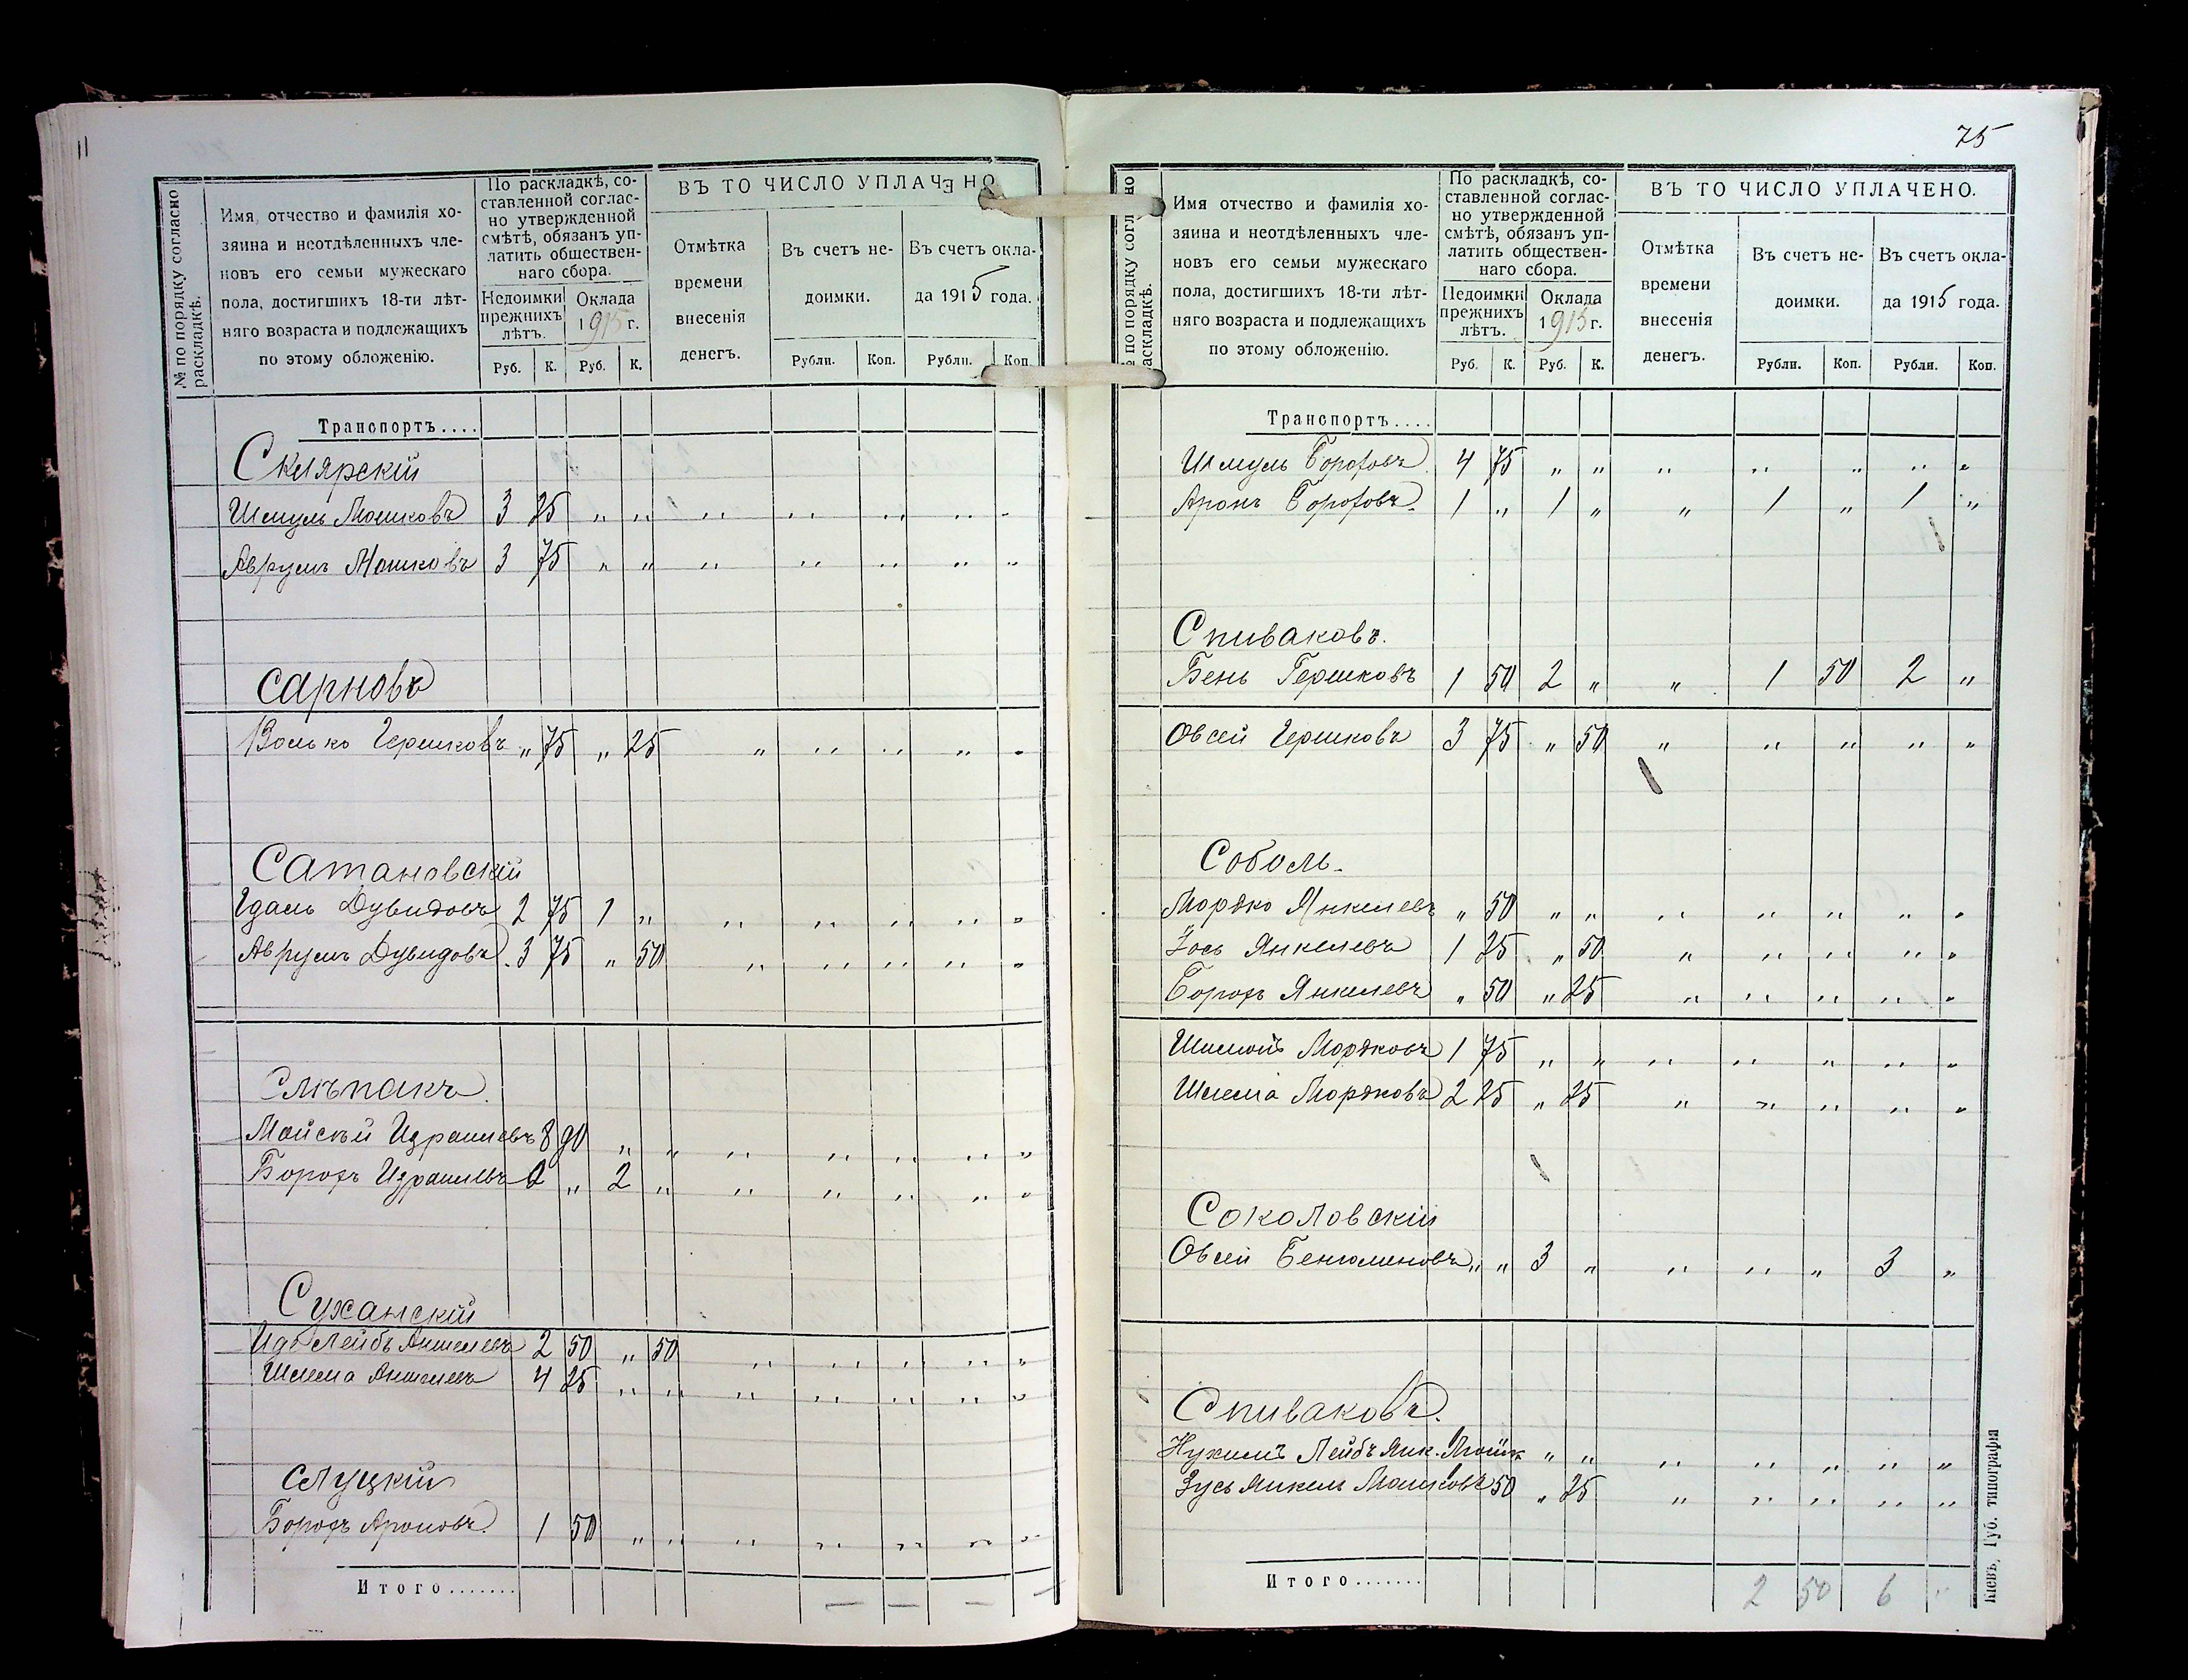 № по порядку согласно раскладкѣ.
Имя, отчество и фамилія хо-
зяина и неотдѣленныхъ чле-
новъ его семьи мужескаго
пола, достигшихъ 18-ти лѣт-
няго возраста и подлежащихъ
по этому обложенію.
По раскладкѣ, со-
ставленной соглас-
но утвержденной
смѣтѣ, обязанъ уп-
латить обществен-
наго сбора.
Недоимки
прежнихъ
лѣтъ.
Оклада
1915 г.
Руб. К. Руб. К.
ВЪ ТО ЧИСЛО УПЛАЧЕНО
Отмѣтка
времени
внесенія
денегъ.
Въ счетъ не-
доимки.
Въ счетъ окла-
да 1915 года.
Рубли. Коп. Рубли. Коп.
Транспортъ....
Склярскій
Шмуль Мошковъ 3 25 " " " " " " "
Аврумъ Мошковъ 3 75 " " " " " " "
Сарновъ
Волько Гершковъ " 75 " 25 " " " " "
Сатановскій
Гдаль Дувидовъ 2 75 1 " " " " " "
Аврумъ Дувидовъ 3 75 " 50 " " " " "
Слѣпакъ
Мойсѣй Израилевъ 8 90 " " " " " " "
Борохъ Израилевъ 2 " 2 " " " " " "
Суханскій
Лейбъ Аншелевъ 2 50 " 50 " " " " "
Шлема Аншелевъ 4 25 " " " " " " "
Слуцкій
Борохъ Ароновъ 1 50 " " " " " " "
Итого....... — — — —
75
№ по порядку согласно раскладкѣ.
Имя отчество и фамилія хо-
зяина и неотдѣленныхъ чле-
новъ его семьи мужескаго
пола, достигшихъ 18-ти лѣт-
няго возраста и подлежащихъ
по этому обложенію.
По раскладкѣ, со-
ставленной соглас-
но утвержденной
смѣтѣ, обязанъ уп-
латить обществен-
наго сбора.
Недоимки
прежнихъ
лѣтъ.
Оклада
1915 г.
Руб. К. Руб. К.
ВЪ ТО ЧИСЛО УПЛАЧЕНО.
Отмѣтка
времени
внесенія
денегъ.
Въ счетъ не-
доимки.
Въ счетъ окла-
да 1915 года.
Рубли. Коп. Рубли. Коп.
Транспортъ....
Шмуль Бороховъ 4 75 " " " " " " "
Аронъ Бороховъ 1 " 1 " " 1 " 1 "
Спиваковъ.
Бень Гершковъ 1 50 2 " " 1 50 2 "
Овсей Гершковъ 3 75 " 50 " " " " "
Соболь.
Мордко Янкелевъ " 50 " " " " " " "
Іось Янкелевъ 1 25 " 50 " " " " "
Борохъ Янкелевъ " 50 " 25 " " " " "
Мордковъ 1 75 " " " " " " "
Шлема Мордковъ 2 25 " 25 " " " " "
Соколовскій
Овсей Беньоминовъ " " 3 " " " " 3 "
Спиваковъ.
Нухимъ Лейбъ Янк. " " " " " " "
Зусь Янкель Мошковъ 50 " 25 " " " " "
Итого....... 2 50 6 "
Кіевъ, Губ. типографія